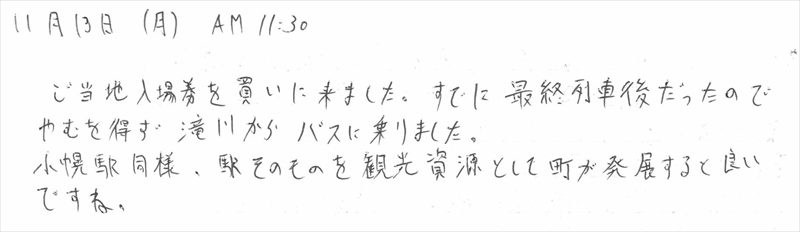 11月13日 (月) AM 11:30
ご当地入場券を買いに来ました。すでに最終列車後だったので
やむを得ず滝川からバスに乗りました。
小幌駅同様、駅そのものを観光資源として町が発展すると良い
ですね。